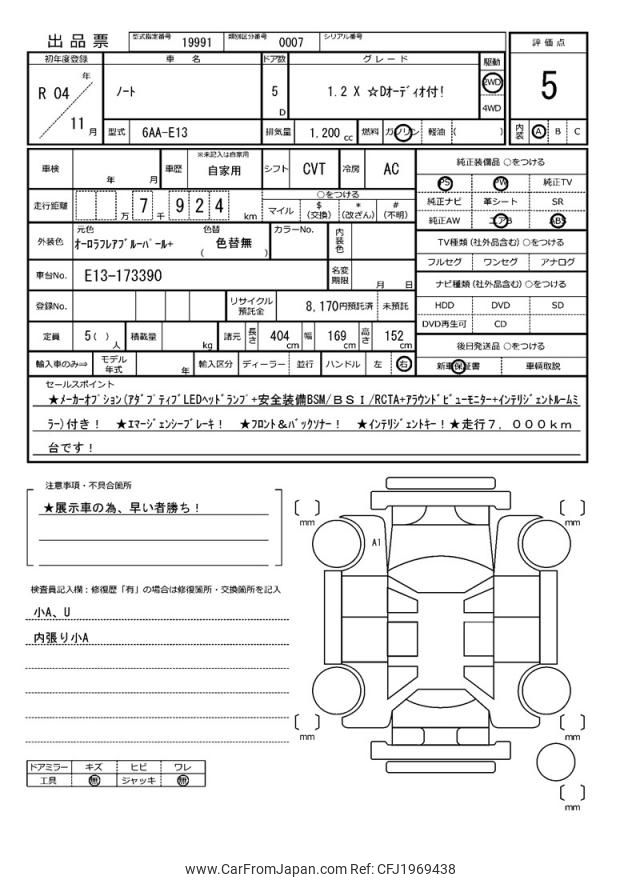 出品票
型式指定番号 19991 類別区分番号 0007 シリアル番号
評価点
5
内装 A B C
初年度登録 車名 ドア数 グレード 駆動
R 04 年 11 月
ノート
5 D
1.2 X ☆Dオーディオ付！
2WD
4WD
型式 6AA-E13 排気量 1,200 cc 燃料 ガソリン 軽油 ( )
車検 年 月 車歴 ※未記入は自家用 自家用 シフト CVT 冷房 AC
走行距離 万 7 千 9 2 4 km
○をつける
マイル $ (交換) * (改ざん) # (不明)
外装色 元色 オーロラフレアブルーパール+ 色替 ( 色替無 ) カラーNo. 内装色
車台No. E13-173390 名変期限 月 日
登録No. リサイクル預託金 8,170円預託済 未預託
定員 5 ( ) 人 積載量 kg 諸元 長さ 404 cm 幅 169 cm 高さ 152 cm
輸入車のみ⇒ モデル年式 年 輸入区分 ディーラー 並行 ハンドル 左 右
純正装備品 ○をつける
PS PW 純正TV
純正ナビ 革シート SR
純正AW エアB ABS
TV種類 (社外品含む) ○をつける
フルセグ ワンセグ アナログ
ナビ種類 (社外品含む) ○をつける
HDD DVD SD
DVD再生可 CD
後日発送品 ○をつける
新車保証書 車輌取説
セールスポイント
★メーカーオプション(アダプティブLEDヘッドランプ+安全装備BSM/BSI/RCTA+アラウンドビューモニター+インテリジェントルームミ
ラー)付き！ ★エマージェンシーブレーキ！ ★フロント&バックソナー！ ★インテリジェントキー！★走行7,000km
台です！
注意事項・不具合箇所
★展示車の為、早い者勝ち！
検査員記入欄：修復歴「有」の場合は修復箇所・交換箇所を記入
小A、U
内張り小A
ドアミラー キズ ヒビ ワレ
工具 無 ジャッキ 無
mm
mm
A1
mm
mm
mm
www.CarFromJapan.com Ref: CFJ1969438